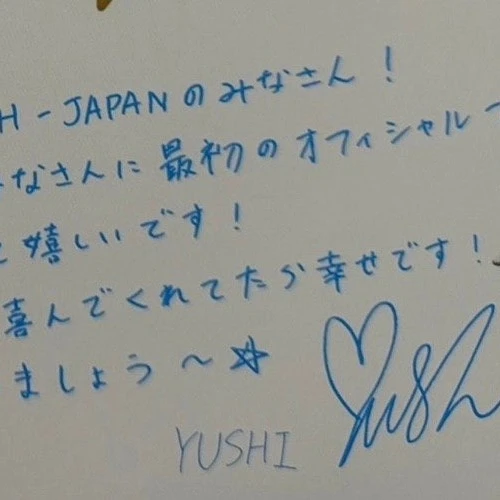 H-JAPANのみなさん!
なさんに最初のオフィシャル
嬉しいです!
喜んでくれてたら幸せです!
ましょう〜☆
Yushi
YUSHI